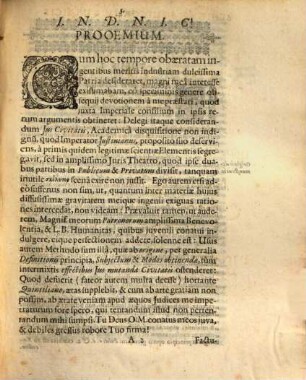 I. N. D. N. I. C!
PROOEMIUM.
Cum hoc tempore obæratam in-
gentibus meritis industriam dulcissima
Patria desideraret, magni rei interesse
existimabam, eo speciminis genere ob-
sequii devotionem à me præstari, quod
juxta Imperiale consilium in ipsis re-
rum argumentis obtineret: Delegi itaque consideran-
dum Jus Civitatis, Academicâ disquisitione non indi-
gnum, quod Imperator Justinianus, proposito suo deser-
viens, à prima quidem legitimæ scientiæ Elementis se-
gavit, sed in amplissimo Juris Theatro, quod ipse dua-
bus partibus in Publicum & Privatum divisit, tanquam
inutile scenâ exire non jussit. Ego autem etsi ad-
eò sufferus non sim, ut, quantum inter materiæ hujus
difficultatem gravitatem meique ingenii exiguas ratio-
nes intercedat, non videam: Prævaluit tamen, ut aude-
rem, Magnificorum Patronorum amplissima Benevo-
lentia, & L. B. Humanitas, quibus juvenili conatui in-
dulgere, eique perfectionem addere solenne est: Usus
autem Methodo sum illâ, quæ ab origine, per generalia
Definitionis principia, Subjectum & Modos obtinendi,
intermistis effectibus Jus mutandæ Civitatis ostenderet:
Quod defuerit (fuerit autem multa deesse) hortante
Quintiliano, ætas supplebit, & cum ab arte gratiam non
possim, ab ætate veniam apud æquos Judices me impe-
traturum fore spero, qui tentandum istud non perten-
tandum mihi sumpsi. Tu Deus O. M. conatus meos juva,
& debiles gressus robore Tuo firma!
A 2 Factu-